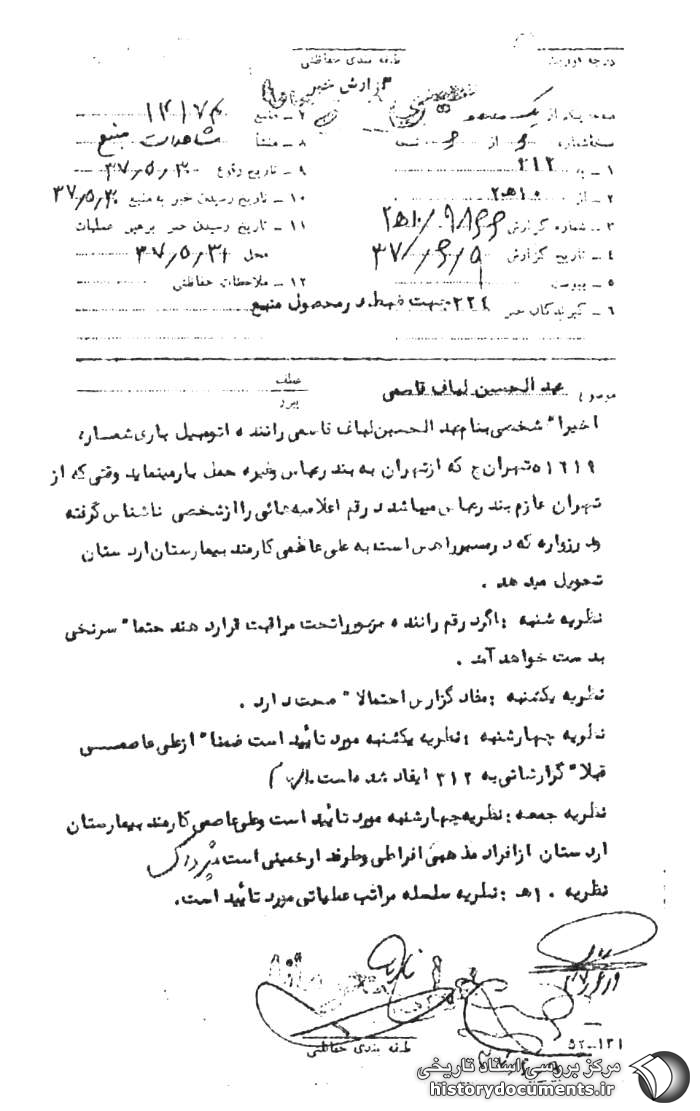 درجه فوریت
طبقه بندی حفاظتی
گزارش خبر
صفحه یکم از یک صفحه
نسخه شماره از نسخه
۱ – به ۳۱۲
۲ – از ۱۰ه۲
۳ – شماره گزارش
۴ – تاریخ گزارش ۳۷/۶/۵
۵ – پیوست
۶ – گیرندگان خبر ۲۲۴ جهت ضبط در محصول منبع
۷ – منبع ۱۴۱۷
۸ – منشأ مشاهدات منبع
۹ – تاریخ وقوع ۳۷/۵/۳۰
۱۰ – تاریخ رسیدن خبر به منبع ۳۷/۵/۳۰
۱۱ – تاریخ رسیدن خبر برهبر عملیات
محل ۳۷/۵/۳۱
۱۲ – ملاحظات حفاظتی
موضوع عبدالحسین لباف قاسمی
عطف
پیرو
اخیرا" شخصی بنام عبدالحسین لباف قاسمی راننده اتومبیل باری شماره
۵۱۶۱۹ تهران ج که از تهران به بندرعباس وغیره حمل بار مینماید وقتی که از
تهران عازم بندرعباس میباشد در قم اعلامیه هائی را از شخصی ناشناس گرفته
ودر زواره که در مسیر راهش است به علی عاصمی کارمند بیمارستان اردستان
تحویل میدهد .
نظریه شنبه : اگر در قم راننده مزبور را تحت مراقبت قرار دهند حتما" سرنخی
بدست خواهد آمد .
نظریه یکشنبه : مفاد گزارش احتمالا" صحت دارد .
نظریه چهارشنبه : نظریه یکشنبه مورد تأیید است ضمنا" از علی عاصمی
قبلا" گزارشاتی به ۳۱۲ ایفاد شده است .
نظریه جمعه : نظریه چهارشنبه مورد تأیید است وعلی عاصمی کارمند بیمارستان
اردستان از افراد مذهبی افراطی وطرفدار خمینی است
نظریه ۱۰ ه : نظریه سلسله مراتب عملیاتی مورد تأیید است.
طبقه بندی حفاظتی
۵۲-۱۳۱
مرکز بررسی اسناد تاریخی
historydocuments.ir